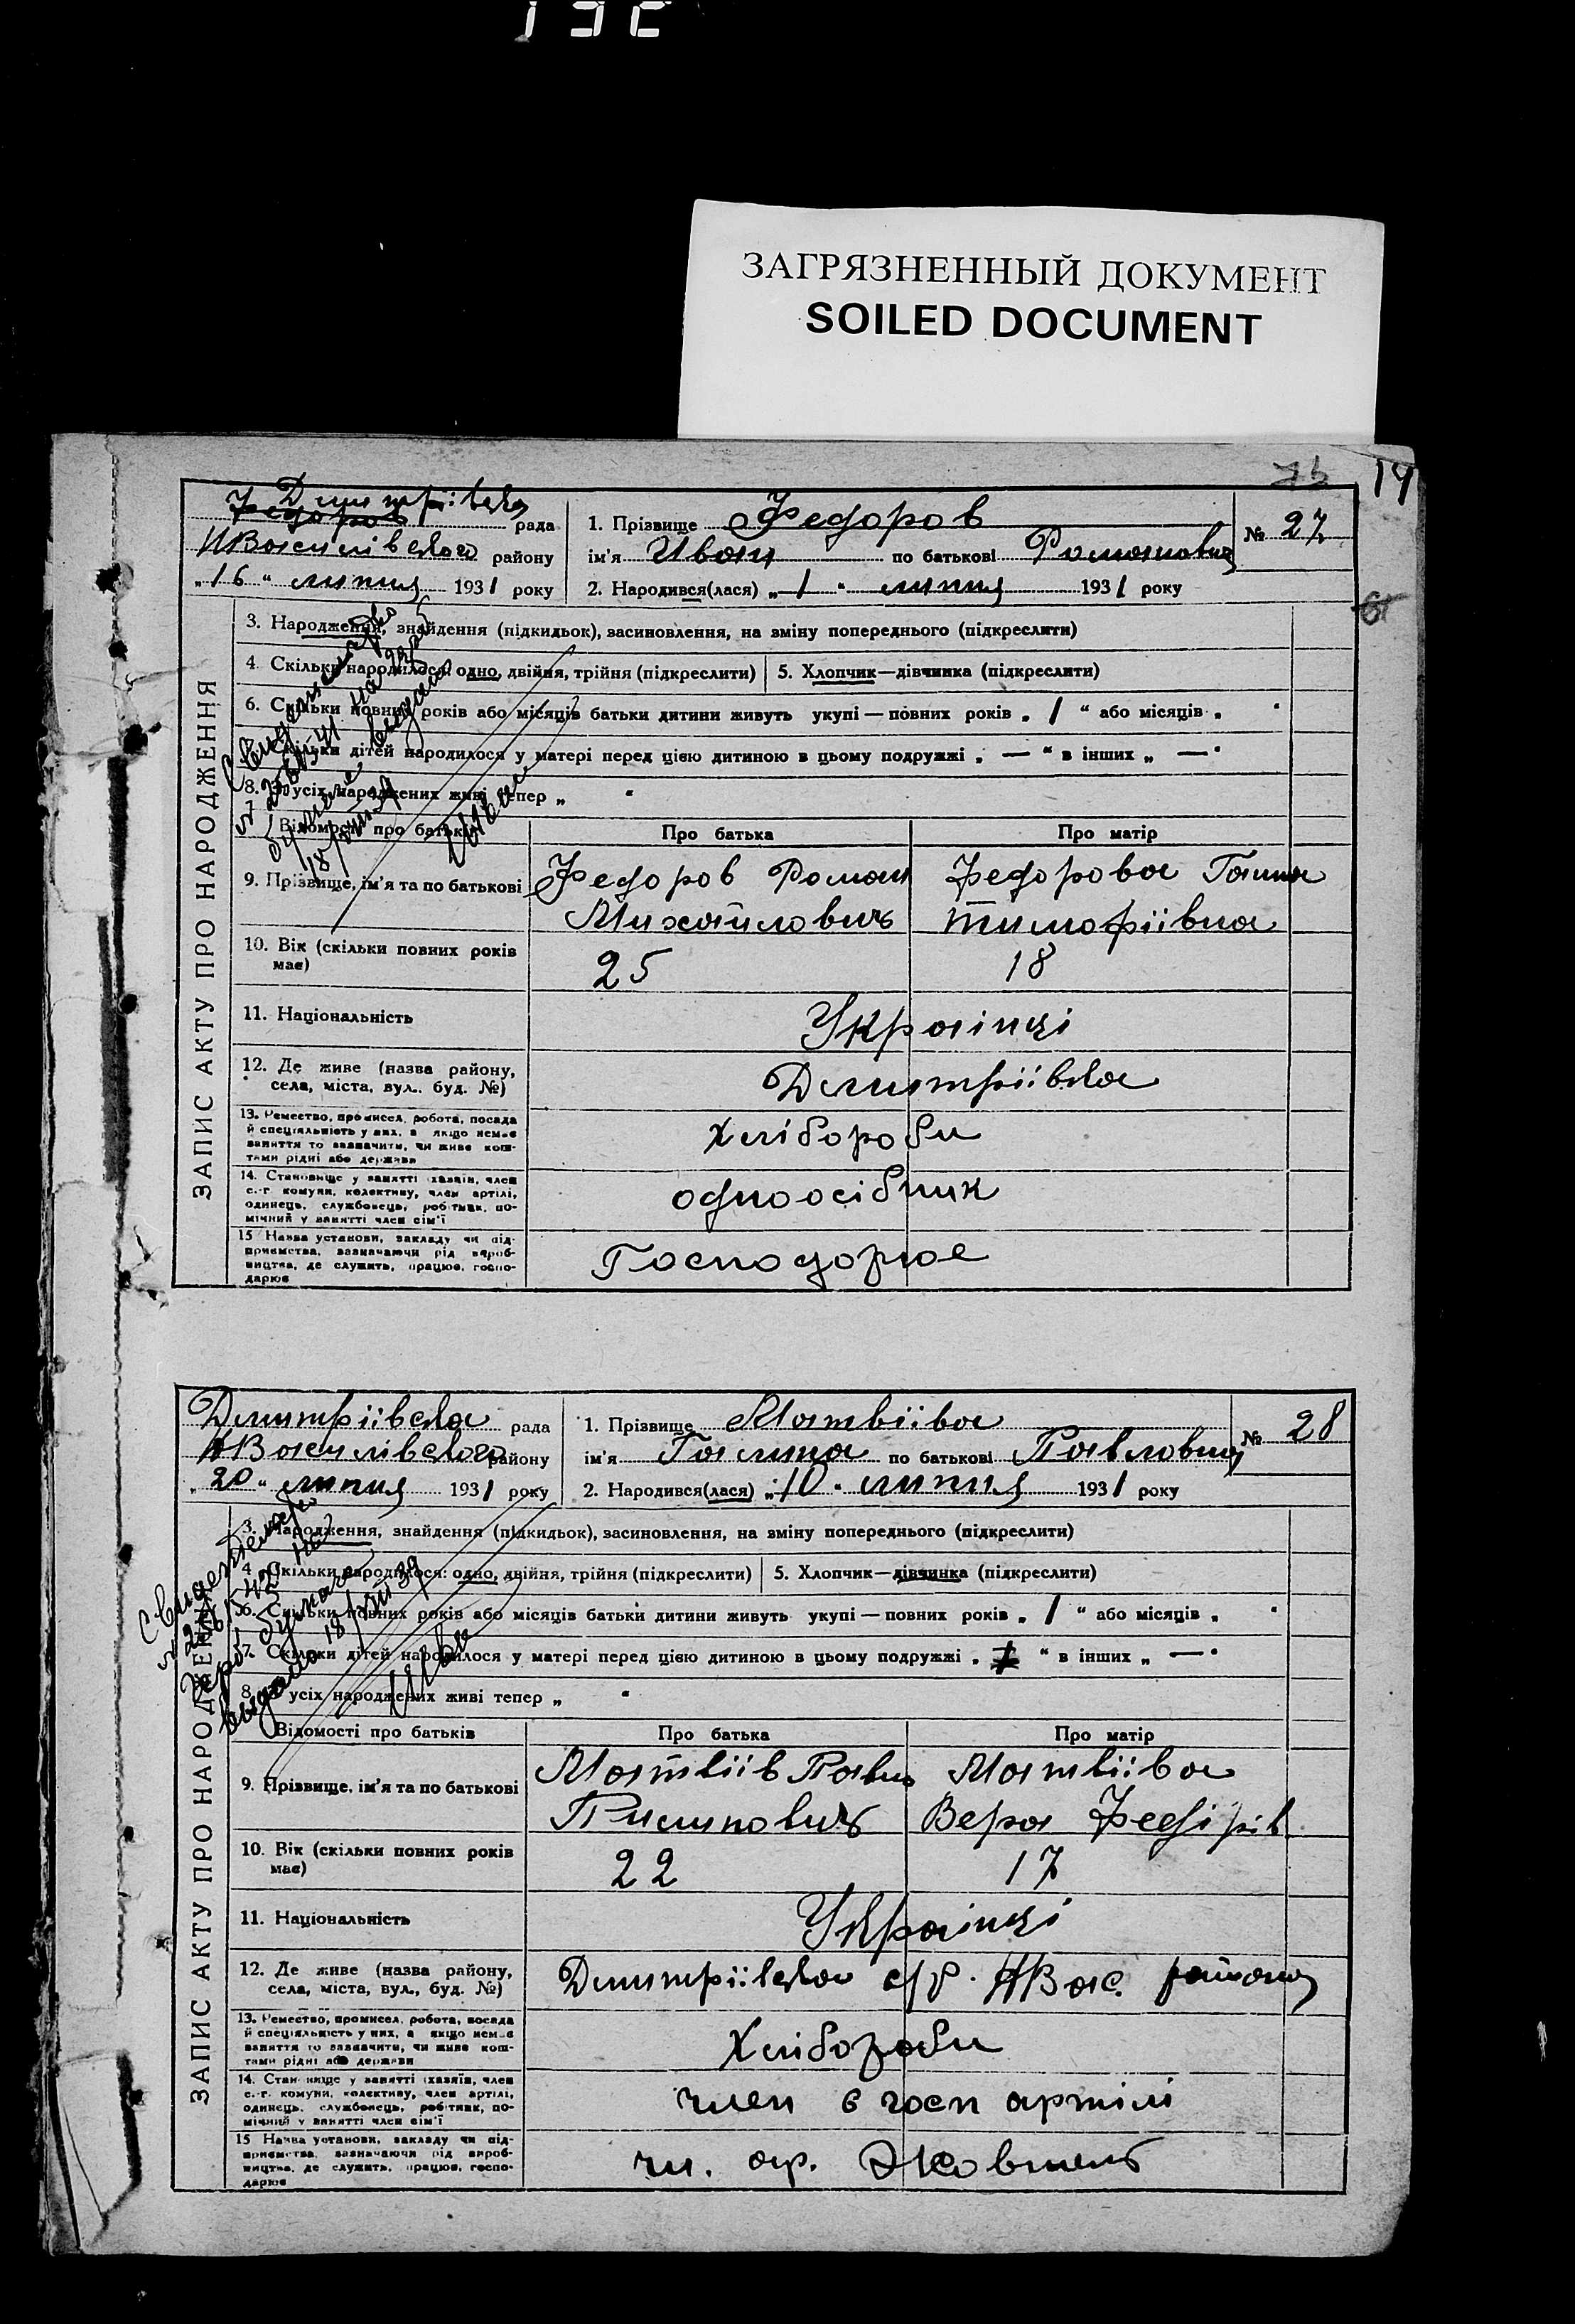 ЗАГРЯЗНЕННЫЙ ДОКУМЕНТ
SOILED DOCUMENT
14
ЗАПИС АКТУ ПРО НАРОДЖЕННЯ
Дмитріївска
Федоров рада
НВасилівская району
„16“ липня 1931 року
1. Прізвище Федоров
ім'я Иван по батькові Романович
2. Народився(лася) „1“ липня 1931 року
№ 27
3. Народження, знайдення (підкидьок), засиновлення, на зміну попереднього (підкреслити)
4. Скільки народилося: одно, двійня, трійня (підкреслити) 5. Хлопчик—дівчинка (підкреслити)
6. Скільки повних років або місяців батьки дитини живуть укупі — повних років „1“ або місяців „ “
7. Скільки дітей народилося у матері перед цією дитиною в цьому подружжі „—“ в інших „—“
8. З усіх народжених живі тепер „ “
Відомості про батьків Про батька Про матір
9. Прізвище, ім'я та по батькові Федоров Роман Федорова Ганна
Михайлович Тимофіївна
10. Вік (скільки повних років має) 25 18
11. Національність Українці
12. Де живе (назва району, села, міста, вул., буд. №) Дмитріївка
13. Ремество, промисел, робота, посада
й спеціяльність у них, а якщо немає
заняття то зазначити, чи живе кош-
тами рідні або держави
Хлібороби
14. Становище у занятті (хазяїн, член
с.-г. комуни, колективу, член артілі,
одинець, службовець, робітник, по-
мічний у занятті член сім'ї
одноосібник
15 Назва установи, закладу чи під-
приємства, зазначаючи рід вироб-
ництва, де служить, працює, госпо-
дарює
Господорює
ЗАПИС АКТУ ПРО НАРОДЖЕННЯ
Дмитріївска рада
НВасилівского району
„20“ липня 1931 року
1. Прізвище Матвіїва
ім'я Галина по батькові Павловна
2. Народився(лася) „10“ липня 1931 року
№ 28
3. Народження, знайдення (підкидьок), засиновлення, на зміну попереднього (підкреслити)
4. Скільки народилося: одно, двійня, трійня (підкреслити) 5. Хлопчик—дівчинка (підкреслити)
6. Скільки повних років або місяців батьки дитини живуть укупі — повних років „1“ або місяців „ “
7. Скільки дітей народилося у матері перед цією дитиною в цьому подружжі „ “ в інших „—“
8. З усіх народжених живі тепер „ “
Відомості про батьків Про батька Про матір
9. Прізвище, ім'я та по батькові Матвіїв Павло Матвіїва
Пилипович Вера Федірів
10. Вік (скільки повних років має) 22 17
11. Національність Українці
12. Де живе (назва району, села, міста, вул., буд. №) Дмитріївка с/р. НВас. району
13. Ремество, промисел, робота, посада
й спеціяльність у них, а якщо немає
заняття то зазначити, чи живе кош-
тами рідні або держави
Хлібороби
14. Становище у занятті (хазяїн, член
с.-г. комуни, колективу, член артілі,
одинець, службовець, робітник, по-
мічний у занятті член сім'ї
член с госп артілі
15 Назва установи, закладу чи під-
приємства, зазначаючи рід вироб-
ництва, де служить, працює, госпо-
дарює
чл. ар. Жовтень